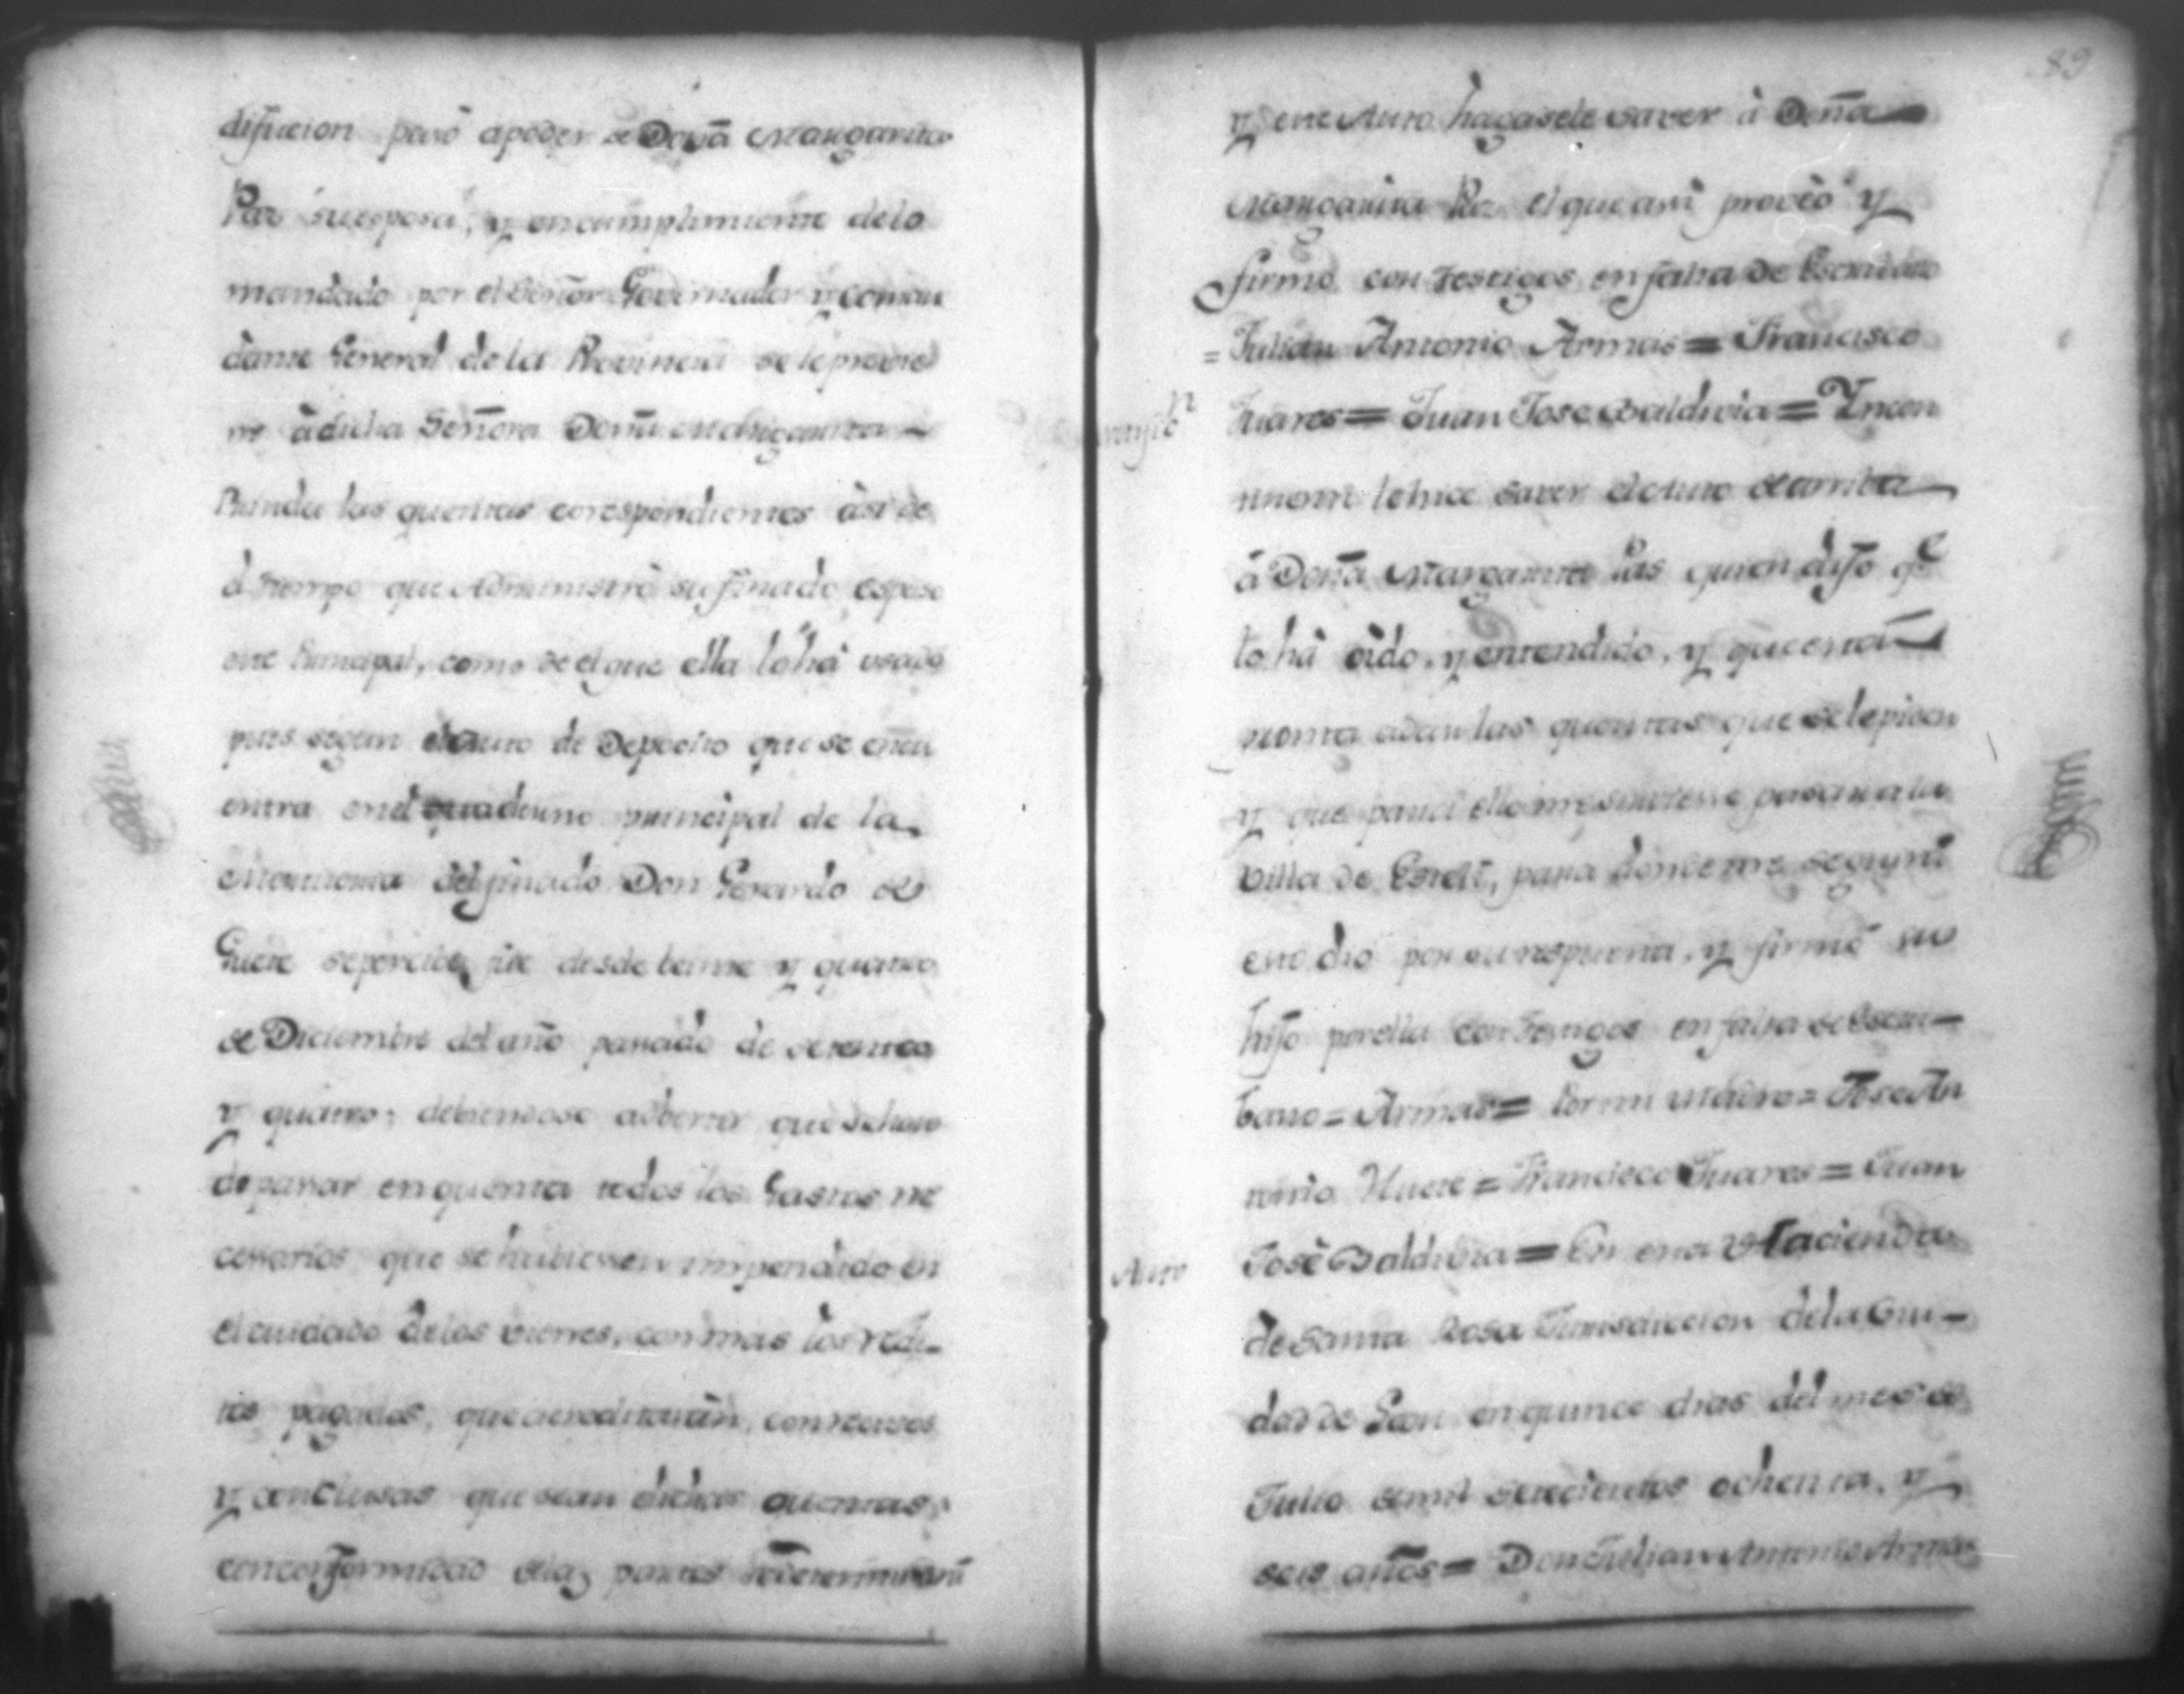 difucion pasó a poder de Doña Margarita
Paz su esposa, y en cumplimiento de lo
mandado por el Señor Governador y Coman
dante General de la Provincia se le previe
ne à dicha Señora Doña Margarita
Rinda las quentas correspondientes àsi de
el tiempo que Administrò su finado esposo
este Principal, como de el que ella lo hà usado
pues segun el auto de Deposito que se encu
entra en el quaderno principal de la
del finado Don Gerardo de
Huete se percive fue desde beinte y quatro
de Diciembre del año pasado de setenta
y quatro; debiendose adbertir que se han
de pasar en quenta todos los Gastos ne
cessarios que se hubiessen impendido en
el cuidado de los vienes, con mas los redi-
tos pagados, que acreditarán con recivos
y conclusas que sean dichas quentas,
con conformidad de las partes se determinará
89
y este Auto hagasele saver à Doña
Margarita Paz el que asi proveò y
firmo con testigos en falta de Escrivano
= Julian Antonio Armas = Francisco
Juares = Juan Jose Baldivia = Incon
n
tinenti le hice saver el auto de arriba
à Doña Margarita Pas quien dijo q.e
lo hà oido, y entendido, y que està
pronta a dar las quentas que se le piden
y que para ello me sirviesse pasar a la
Villa de Esteli, para donde me seguirà
esto dio por su respuesta, y firmó su
hijo por ella con testigos en falta de Escri-
bano = Armas = Por mi madre = Jose An
tonio Huete = Francisco Juares = Juan
Auto
Josè Baldivia = En esta Hacienda
de Santa Rosa Jurisdiccion de la Ciu-
dad de Leon en quince dias del mes de
Julio de mil setecientos ochenta, y
seis años = Don Julian Antonio Armas